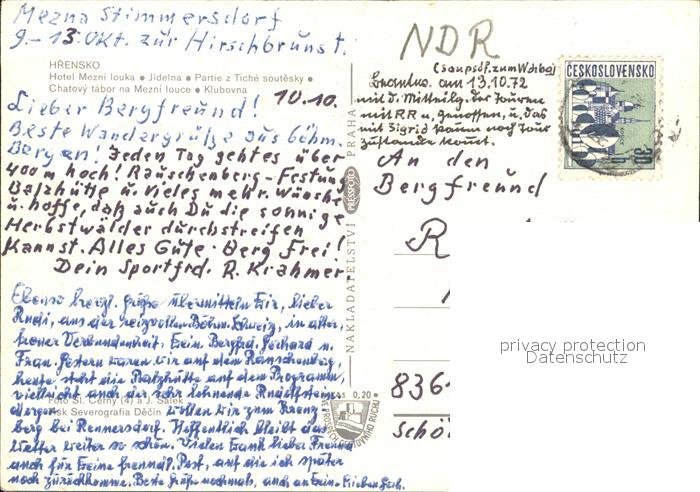 Mezna Stimmersdorf
9.-13. Okt. zur Hirschbrunst.
HŘENSKO
Hotel Mezní louka • Jídelna • Partie z Tiché soutěsky •
Chatový tábor na Mezní louce • Klubovna
10.10.
Lieber Bergfreund!
Beste Wandergrüße aus böhm.
Bergen! Jeden Tag geht es über
400 m hoch! Rauschenberg-Festung
Balzhütte u. vieles mehr. Wünsche
u. hoffe, daß auch Du die sonnige
Herbstwälder durchstreifen
kannst. Alles Gute. Berg Frei!
Dein Sportfrd. R. Krahmer
Ebenso herzl. Grüße übermitteln Dir, lieber
Rudi, aus der reizvollen Böhm. Schweiz, in alter
treuer Verbundenheit, Dein Bergfrd. Gerhard u.
Frau. Gestern waren wir auf dem Rauschenberg,
heute steht die Balzhütte auf dem Programm,
vielleicht auch der sehr lohnende Rudolfstein.
Morgen wollen wir zum Kreuz-
berg bei Rennersdorf. Hoffentlich bleibt das
Wetter weiter so schön. Vielen Dank lieber Freund
auch für Deine freundl. Post, auf die ich später
noch zurückkomme. Beste Grüße nochmals, auch an Deine
Foto Sl. Černý (4) a J. Sálek
Tisk Severografia Děčín
Kčs 0,20
NAKLADATELSTVÍ PRESSFOTO PRAHA
NDR
Beantw. am 13.10.72
mit d. Mitteilg. der Touren
mit RR u. Genossen, u. das
mit Sigrid kaum noch Tour
zustande kommt.
ČESKOSLOVENSKO
30 h
An den
Bergfreund
R
836
Schö
privacy protection
Datenschutz